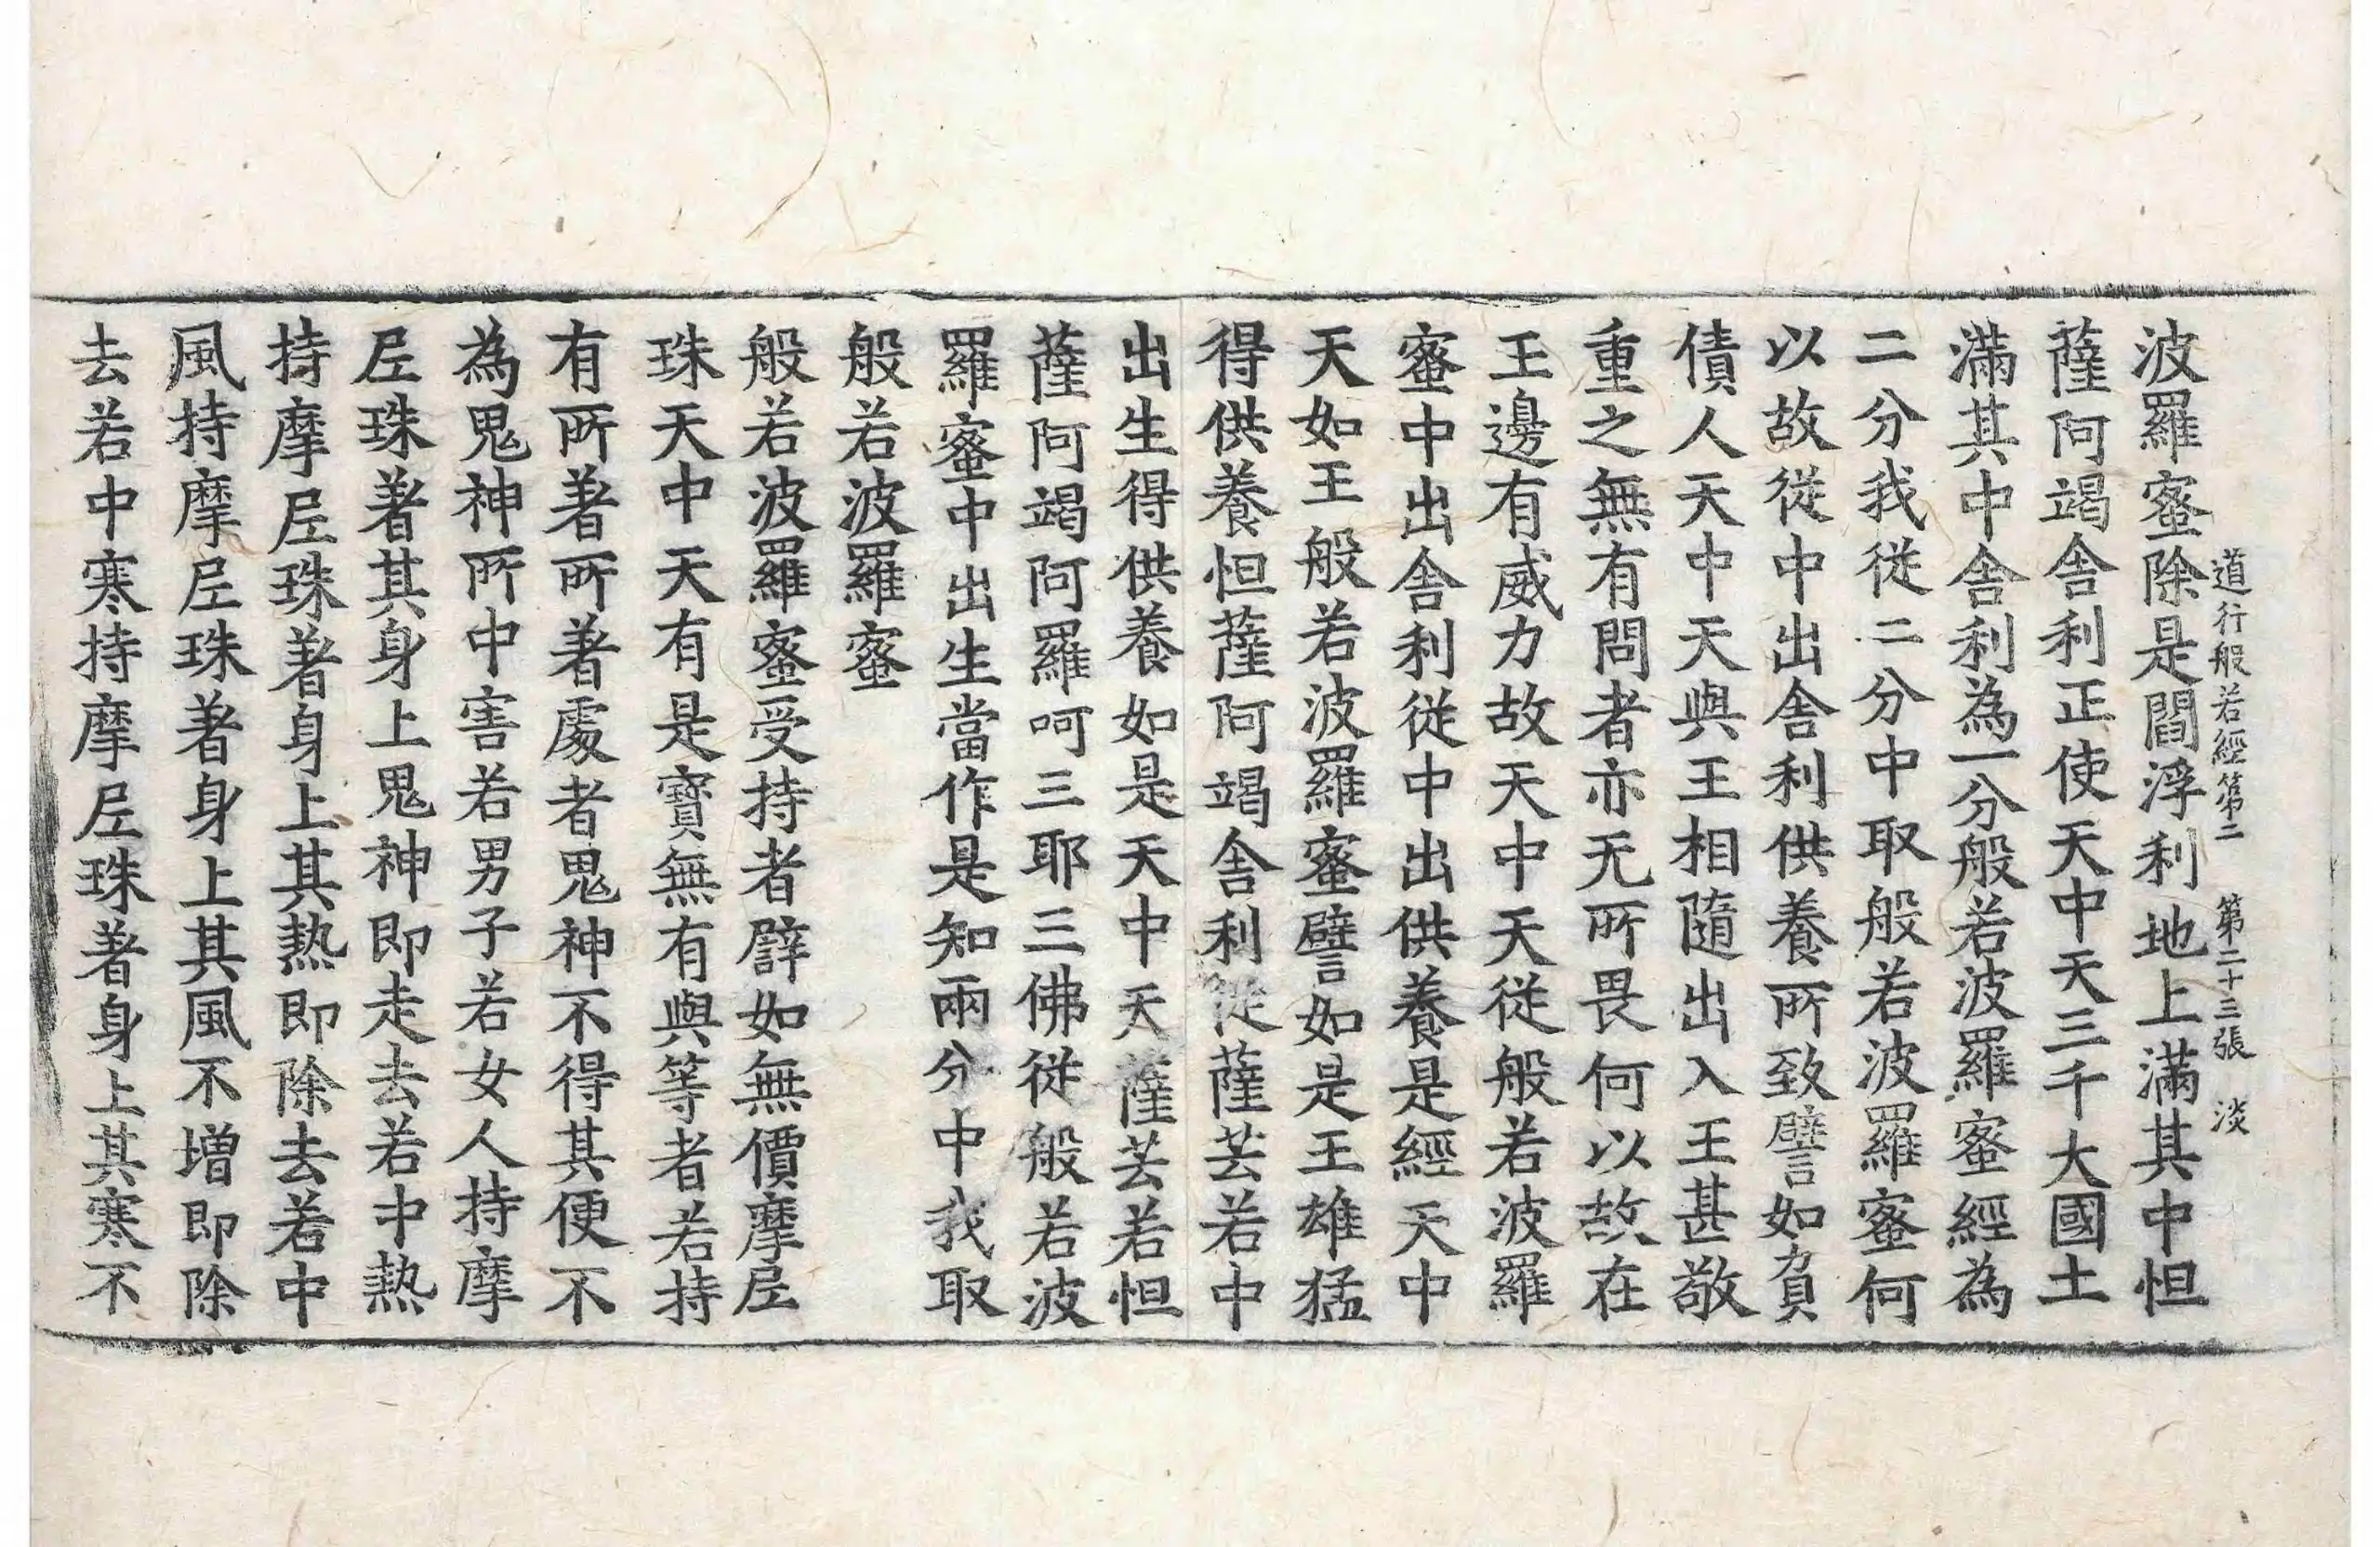 道行般若經第二 第二十三張 淡
波羅蜜除是閻浮利地上滿其中怛
薩阿竭舍利正使天中天三千大國土
滿其中舍利為一分般若波羅蜜經為
二分我從二分中取般若波羅蜜何
以故從中出舍利供養所致譬如負
債人天中天與王相隨出入王甚敬
重之無有問者亦无所畏何以故在
王邊有威力故天中天從般若波羅
蜜中出舍利從中出供養是經天中
天如王般若波羅蜜譬如是王雄猛
得供養怛薩阿竭舍利從薩芸若中
出生得供養如是天中天薩芸若怛
薩阿竭阿羅呵三耶三佛從般若波
羅蜜中出生當作是知兩分中我取
般若波羅蜜
般若波羅蜜受持者辟如無價摩尼
珠天中天有是寶無有與等者若持
有所著所著處者鬼神不得其便不
為鬼神所中害若男子若女人持摩
尼珠著其身上鬼神即走去若中熱
持摩尼珠著身上其熱即除去若中
風持摩尼珠著身上其風不增即除
去若中寒持摩尼珠著身上其寒不